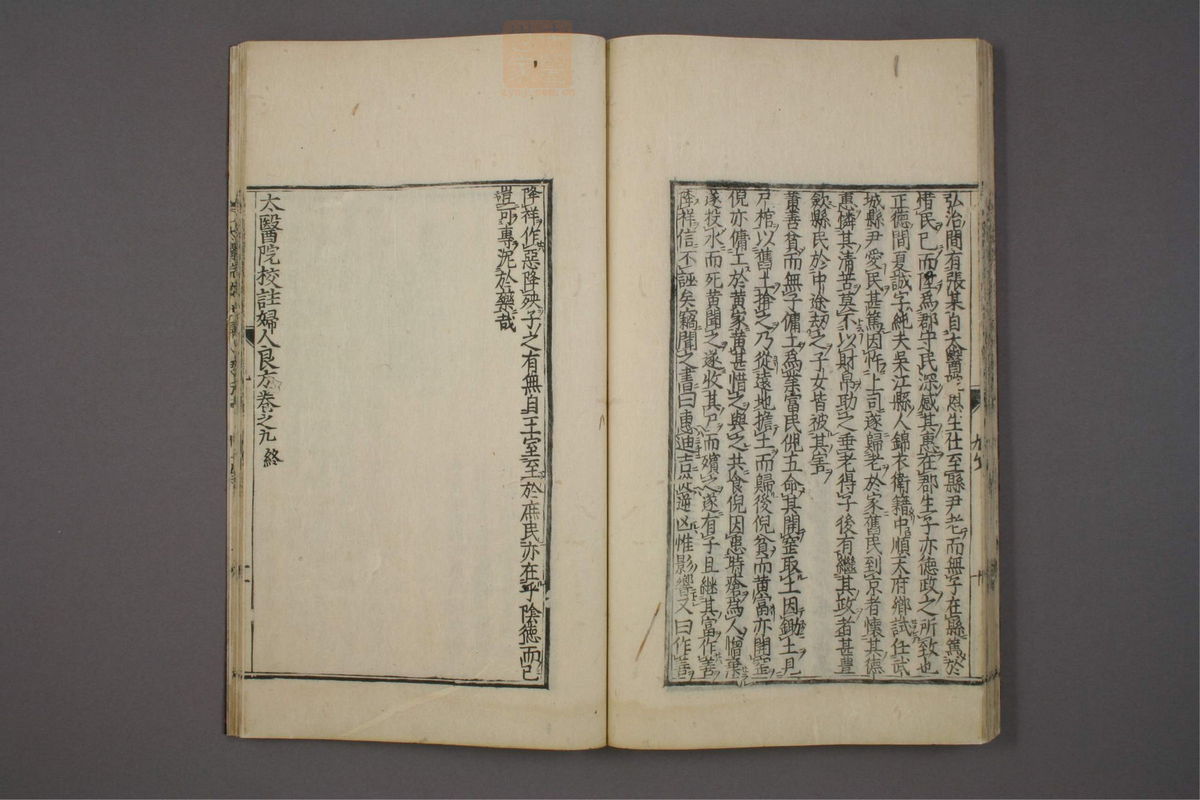 弘治間有張某自太醫院恩生仕至縣尹老而無子在縣篤於
惜民已而陞爲郡守民深感其惠在郡生子亦德政之所致也
正德間夏誠字純夫吳江縣人錦衣衛籍中順天府鄉試任武
城縣尹愛民甚篤因忤上司遂歸老於家舊民到京者懷其德
惠憐其清苦莫不以財帛助之垂老得子後有繼其政者甚豐
歛縣民於中途刼之子女皆被其害
黄善貧而無子傭工爲業富民倪五命其開窑取土因鋤土見
尸棺以舊土掩之乃從遠地擔土而歸後倪貧而黄富亦開窑
倪亦傭工於黄家黄甚惜之與之共食倪因患時瘡爲人憎棄
遂投水而死黄聞之遂收其尸而殯之遂有子且継其富作善
降祥信不誣矣竊聞之書曰惠迪吉從逆凶惟影響又曰作善
降祥作惡降殃子之有無自王室至於庶民亦在乎陰德而已
豈可專泥於藥哉
太醫院校註婦人良方卷之九 終